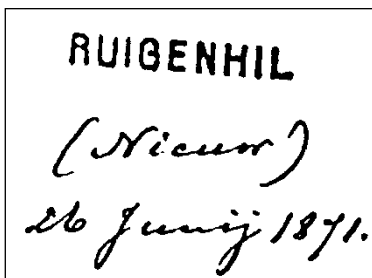 RUIGENHIL
(Nieuw)
26 Junij 1871.